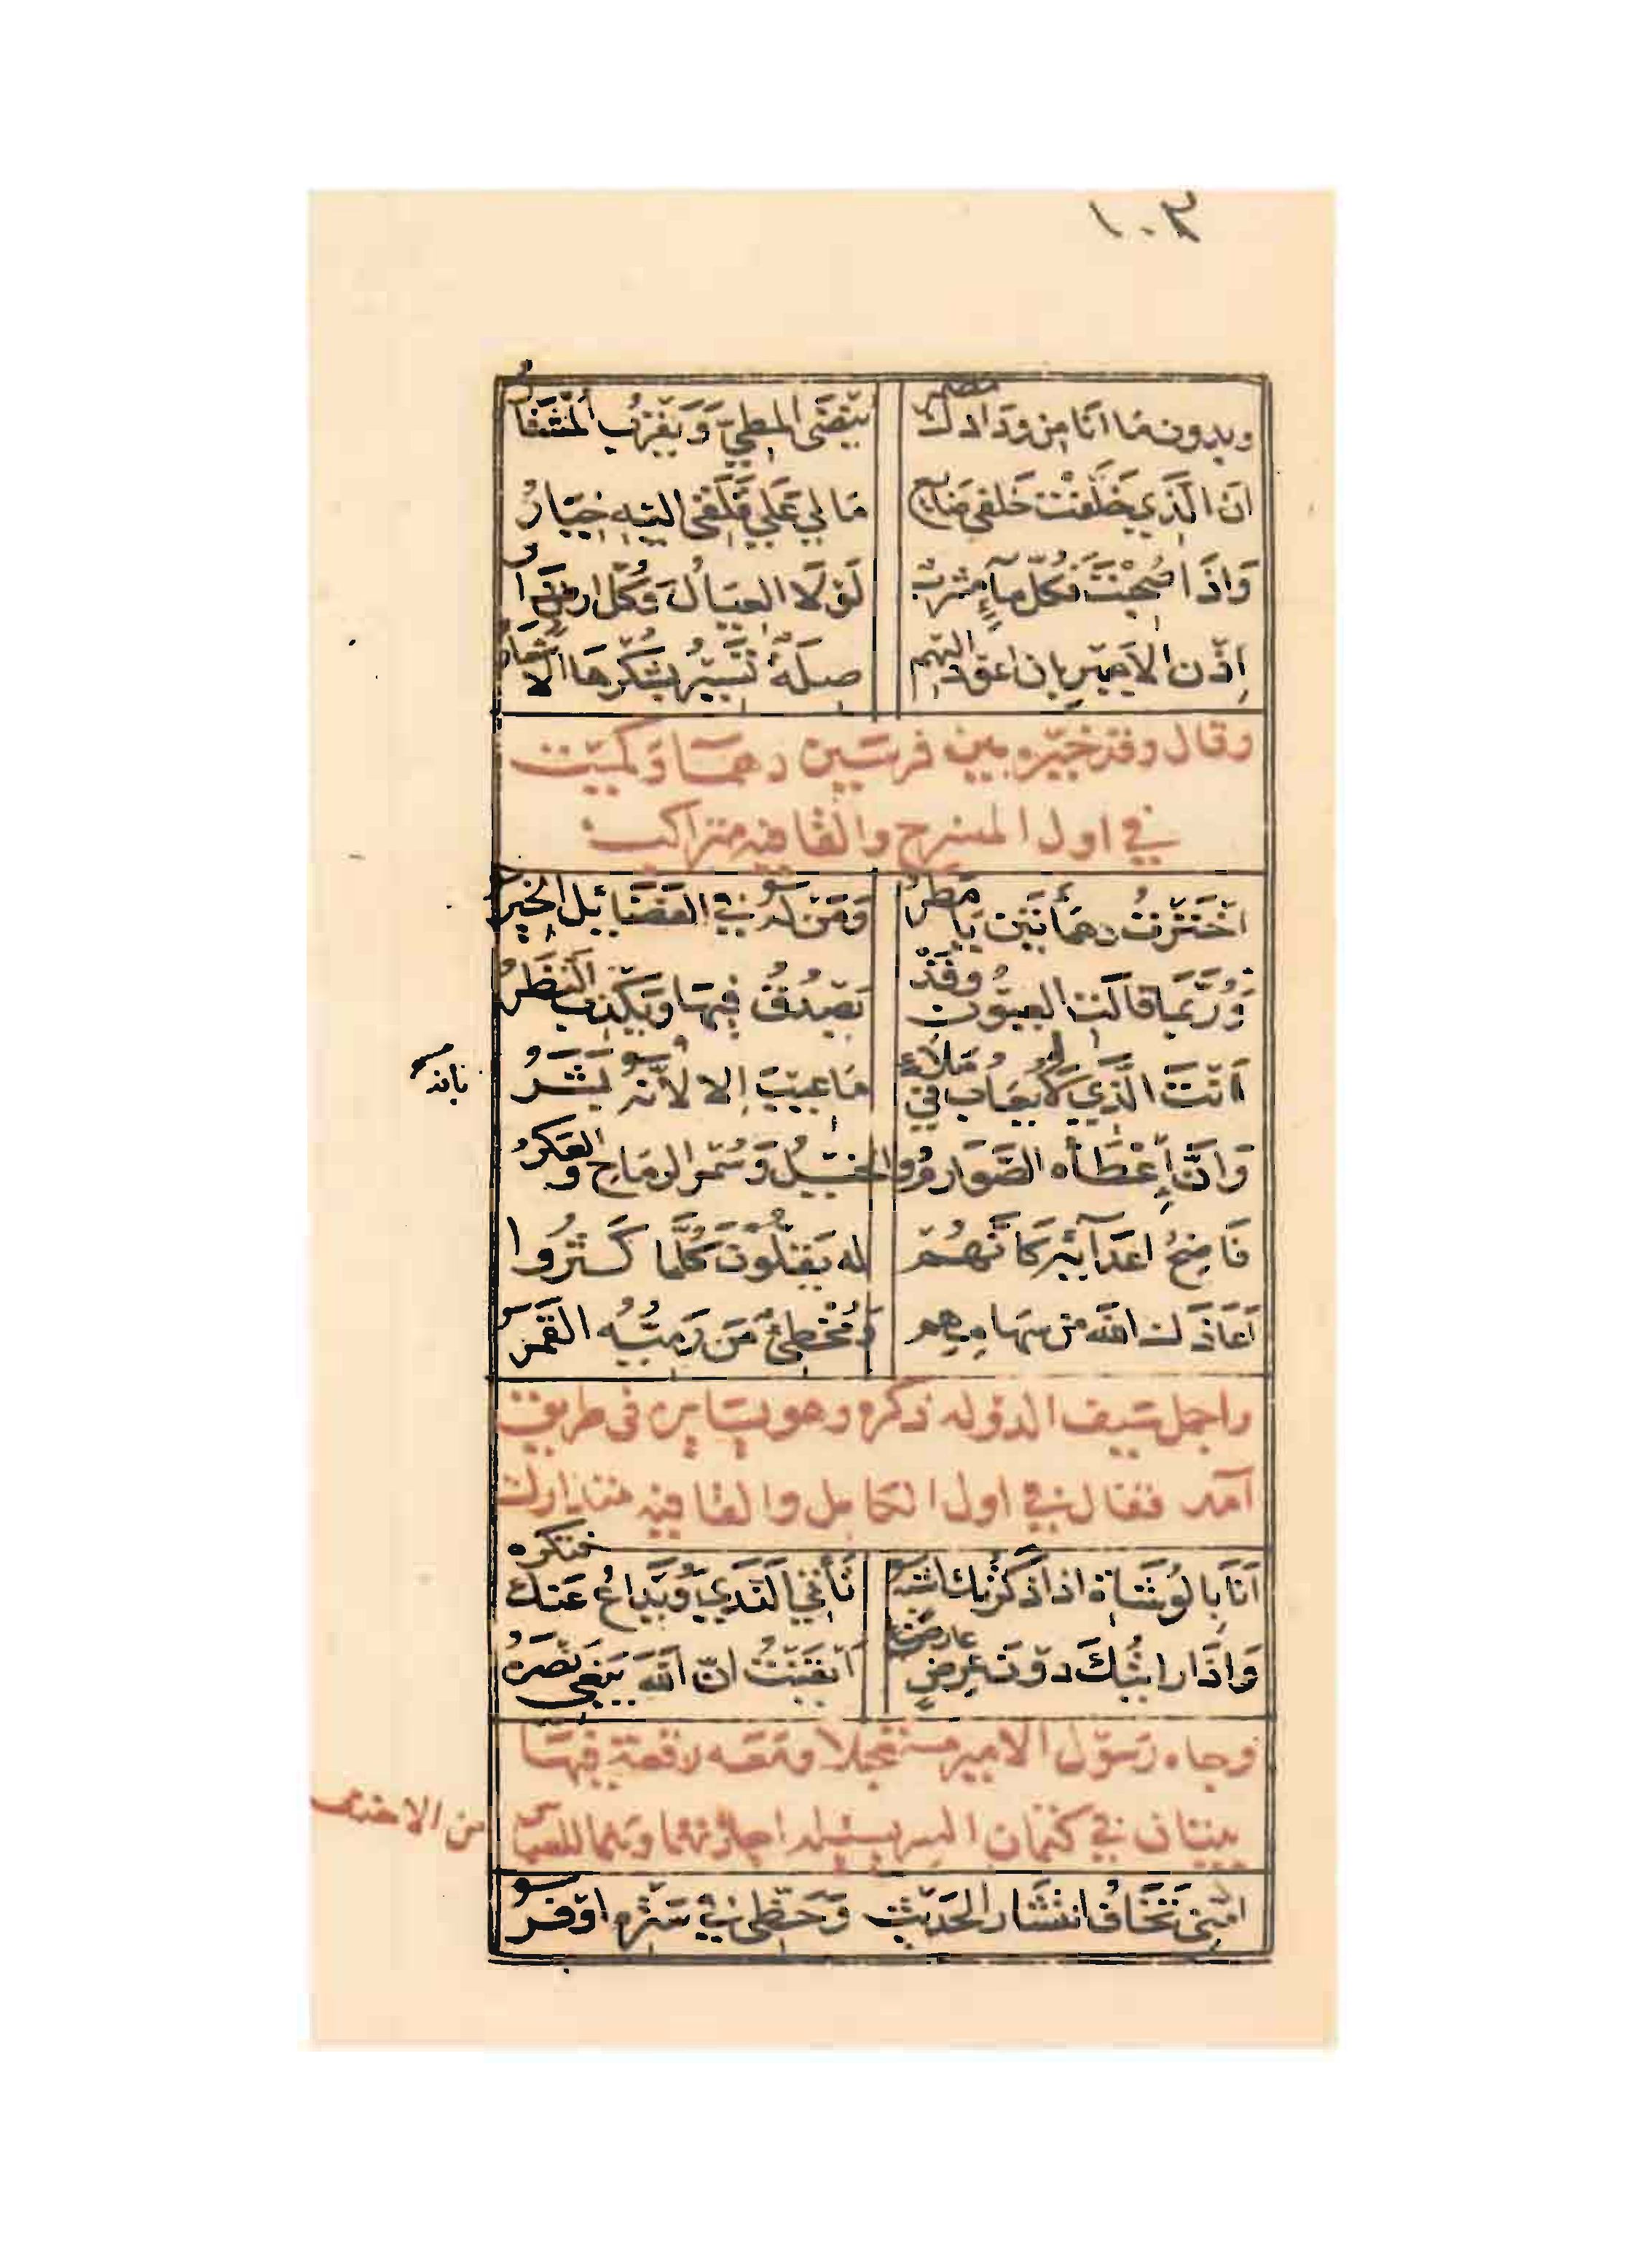 ١٠٣
وبدون ما انا من ودادك مضمر يَنْضَى المطيّ وَيَقرُبُ المُسْتَارُ
ان الّذي خَلّفْت خَلفي ضَايع مَا لي عَلي قَلَقي اليه خِيَارُ
وَاذَا صُحِبْتَ فكلّ مآءٍ مشربٌ لَوْلَا العيَالُ وَكلّ ارضٍ دَارُ
اِذْن الاميرِ بان اعود اليهم صلَةٌ تسيرُ بشكرهَا الاشعارُ
وقال وقد خيّره بين فرسَين دهمَا وَكُميت
في اول المنسرح والقافيه متراكب
اخترتُ دهمَاتَين يَا مطرُ وَمَن لهُ في الفضَايل الخِيَرُ
وَرُبّمَا قالت العيون وقَدْ يَصْدُقُ فيهَا وَيَكذِب النظَرُ
اَنْتَ الّذي لَو يُعَابُ في مَلاءٍ مَا عيبَ إلا لأنّهُ بَشَرُ
بانه
وَانّ إعْطَاه الصّوَارمُ والخيلُ وَسُمر الرمَاح والعكرُ
فَاضِحُ اعدَآئِهِ كَانّهُمْ له يَقِلّونَ كلّمَا كَثُرُوا
اَعَاذَكَ الله من سهَامِهِم وَمُخْطِئٌ مَن رَمِيّهُ القَمَرُ
واجمل سَيف الدوله ذكره وهو يسَايره في طريق
آمد فقال في اول الكامل والقافيه متدارك
اَنَا بِالوُشَاةِ اذا ذكرتك اشبه تَأتي النّدَي وَيُذاعُ عَنك فتكره
وَاذَا رايتُكَ دوْنَ عِرضٍ عارضا اَيْقَنْتُ انّ اللّه يَبغي نَصْرَهُ
وجاه رَسوْل الامير مستعجلا ومَعَه رقعة فيهَا
بيتان في كتمان السر يسئله اجازتهما وهما للعباس
بن الاحنف
امِنّي تَخَافُ انتشَار الحَديث وَحَظّي في سَتْرِه اوْفَرُ